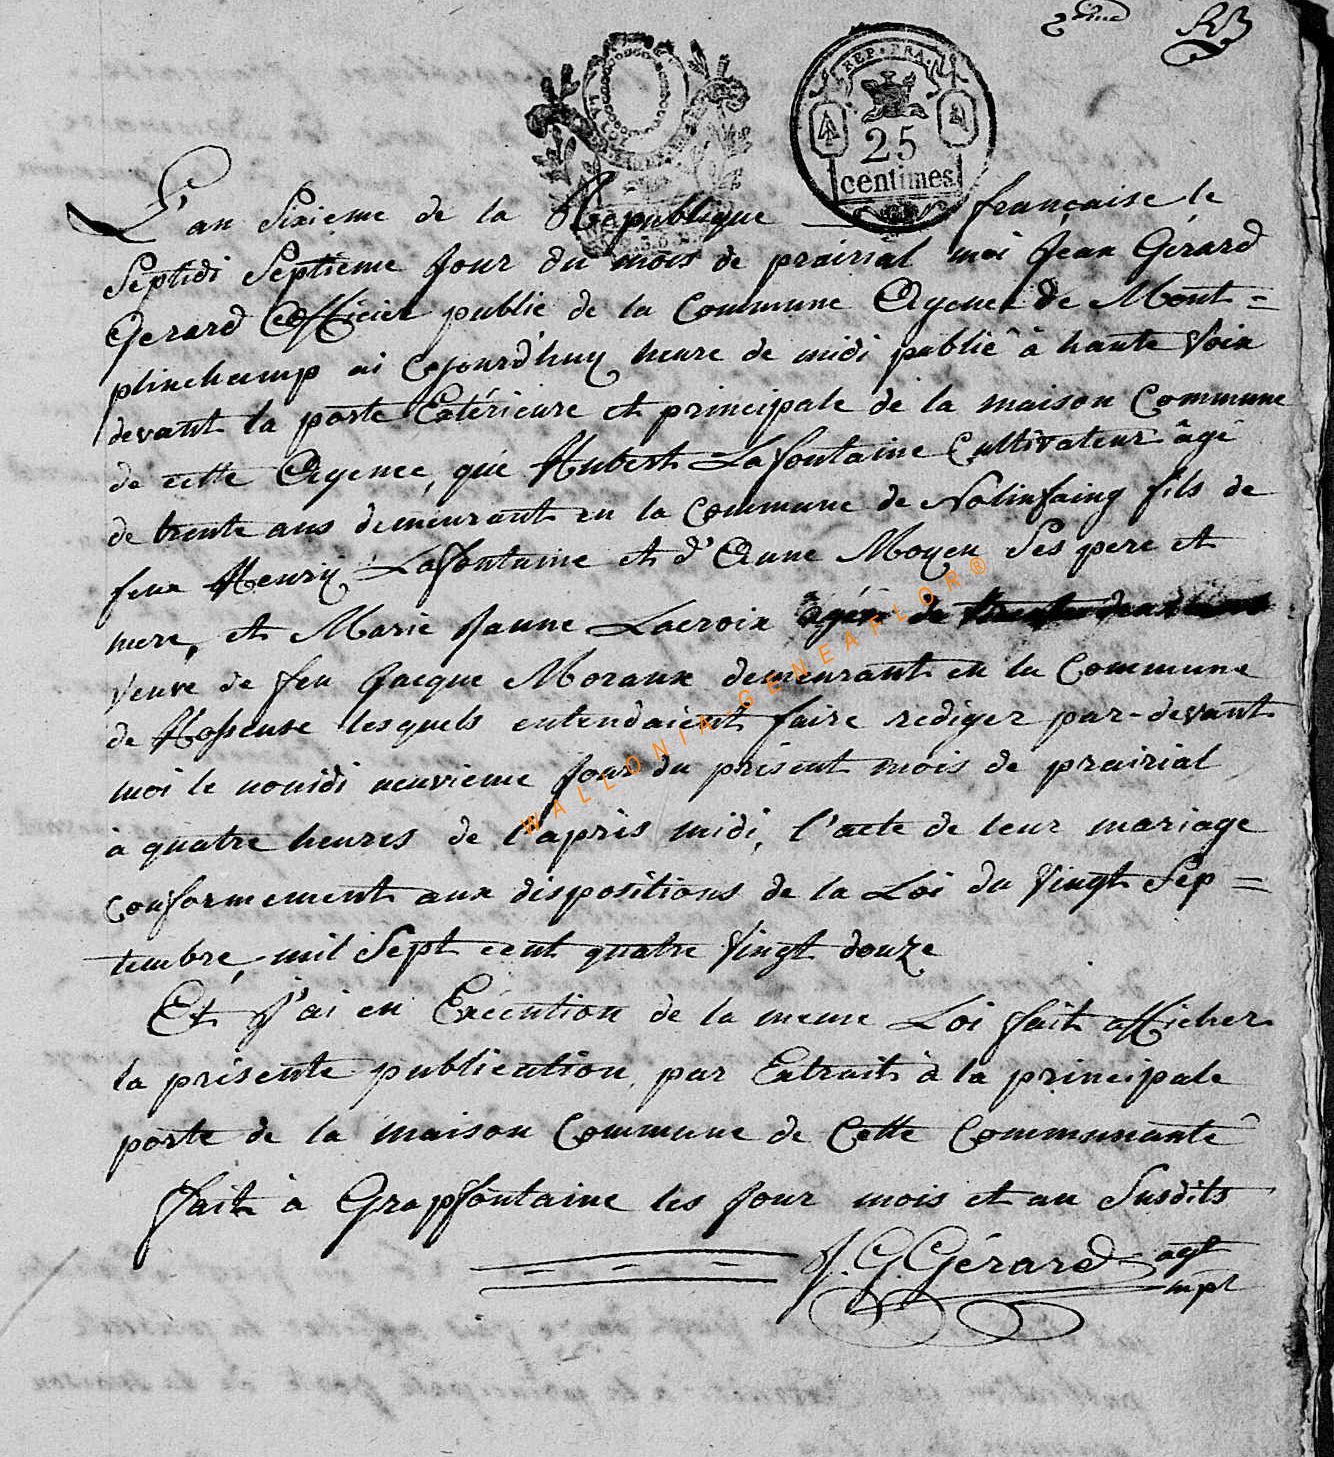 2eme
REP. FRA.
25
centimes
L'an Sixieme de la Republique française le
Septidi Septieme Jour du mois de prairial moi Jean Gérard
Gerard Officier public de la Commune Agence de Mont=
plinchamp ai cejourd'huy heure de midi publié à haute Voix
devant la porte Extérieure et principale de la maison Commune
de cette Agence, que Hubert Lafontaine Cultivateur âgé
de trente ans demeurant en la Commune de Nolinfaing fils de
feux Henry Lafontaine et d'Anne Moyen Ses pere et
mere, et Marie Janne Lacroix agée de
Veuve de feu Jacque Moraux demeurant en la Commune
de Hosseuse lesquels entendaient faire rediger par-devant
moi le nonidi neuvieme Jour du présent mois de prairial
à quatre heures de l'après midi, l'acte de leur mariage
conformement aux dispositions de la Loi du Vingt Sep=
tembre, mil Sept cent quatre Vingt douze
Et J'ai en Exécution de la meme Loi fait afficher
la présente publication par Extrait à la principale
porte de la maison Commune de Cette Communauté
fait à Grapfontaine les Jour mois et an Susdits
J. G. Gérard agt
mpl
WALLONIA-GENEAFLOR®